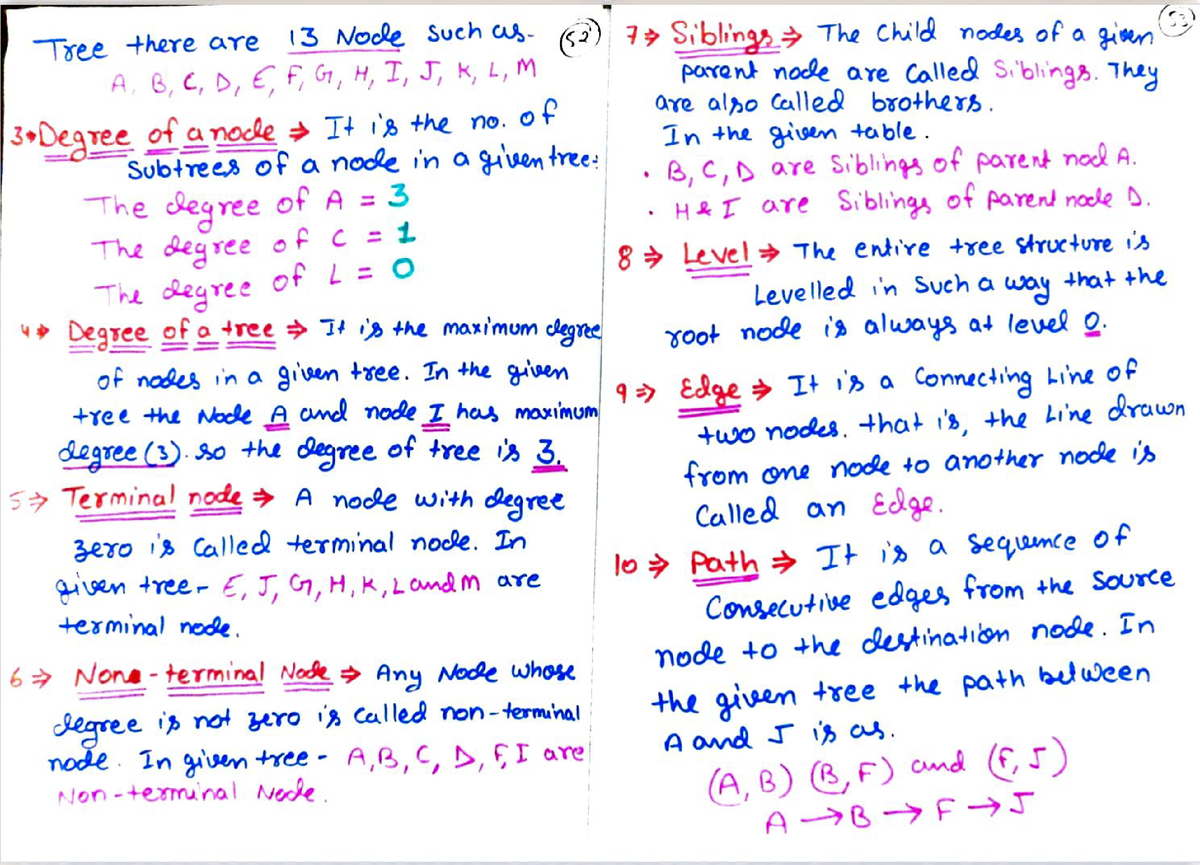 Tree there are 13 Node such as-
(52)
A, B, C, D, E, F, G, H, I, J, K, L, M
3→ Degree of a node ⇒ It is the no. of
Subtrees of a node in a given tree:
The degree of A = 3
The degree of C = 1
The degree of L = 0
4→ Degree of a tree ⇒ It is the maximum degree
of nodes in a given tree. In the given
tree the Node A and node I has maximum
degree (3). so the degree of tree is 3.
5⇒ Terminal node ⇒ A node with degree
zero is called terminal node. In
given tree- E, J, G, H, K, L and M are
terminal node.
6⇒ None-terminal Node ⇒ Any Node whose
degree is not zero is called non-terminal
node. In given tree - A, B, C, D, F, I are
Non-terminal Node.
(53)
7⇒ Siblings ⇒ The Child nodes of a given
parent node are Called Siblings. They
are also Called brothers.
In the given table.
• B, C, D are Siblings of parent nod A.
• H & I are Siblings of parent node D.
8⇒ Level ⇒ The entire tree structure is
Levelled in Such a way that the
root node is always at level 0.
9⇒ Edge ⇒ It is a Connecting Line of
two nodes. that is, the Line drawn
from one node to another node is
Called an Edge.
10⇒ Path ⇒ It is a sequence of
Consecutive edges from the Source
node to the destination node. In
the given tree the path between
A and J is as.
(A, B) (B, F) and (F, J)
A → B → F → J